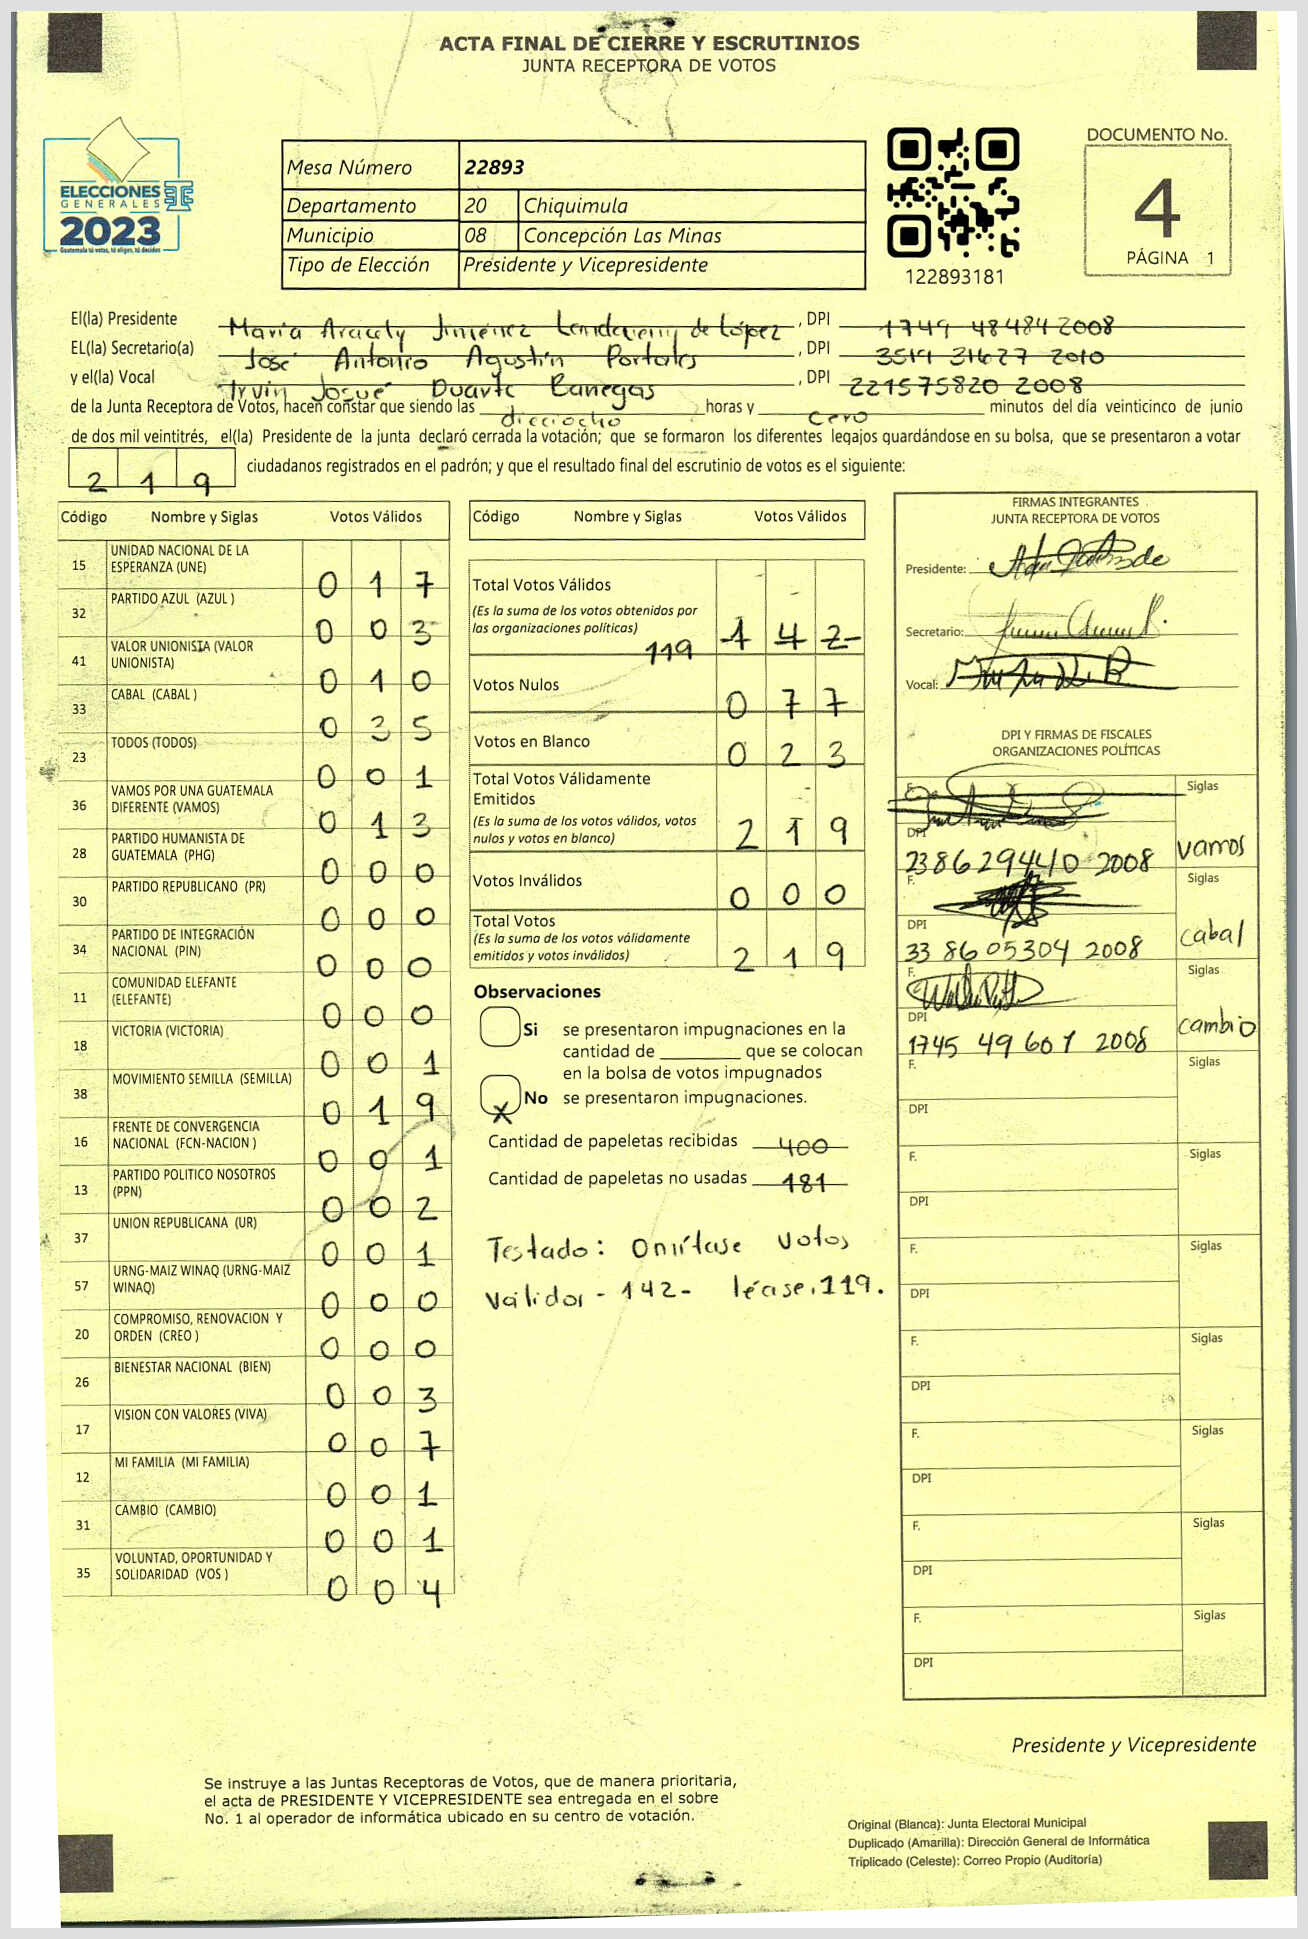 ACTA FINAL DE CIERRE Y ESCRUTINIOS
JUNTA RECEPTORA DE VOTOS
ELECCIONES
GENERALES
2023
Guatemala tú votas, tú eliges, tú decides
Mesa Número 22893
Departamento 20 Chiquimula
Municipio 08 Concepción Las Minas
Tipo de Elección Presidente y Vicepresidente
122893181
DOCUMENTO No.
4
PÁGINA 1
El(la) Presidente María Aracely Jiménez de López, DPI 1749 48484 2008
EL(la) Secretario(a) José Antonio Agustín Portales, DPI 3519 31627 2010
y el(la) Vocal Irvin Josué Duarte Banegas, DPI 221575820 2008
de la Junta Receptora de Votos, hacen constar que siendo las dieciocho horas y cero minutos del día veinticinco de junio
de dos mil veintitrés, el(la) Presidente de la junta declaró cerrada la votación; que se formaron los diferentes legajos guardándose en su bolsa, que se presentaron a votar
219 ciudadanos registrados en el padrón; y que el resultado final del escrutinio de votos es el siguiente:
Código Nombre y Siglas Votos Válidos
15 UNIDAD NACIONAL DE LA ESPERANZA (UNE) 0 1 7
32 PARTIDO AZUL (AZUL ) 0 0 3
41 VALOR UNIONISTA (VALOR UNIONISTA) 0 1 0
33 CABAL (CABAL ) 0 3 5
23 TODOS (TODOS) 0 0 1
36 VAMOS POR UNA GUATEMALA DIFERENTE (VAMOS) 0 1 3
28 PARTIDO HUMANISTA DE GUATEMALA (PHG) 0 0 0
30 PARTIDO REPUBLICANO (PR) 0 0 0
34 PARTIDO DE INTEGRACIÓN NACIONAL (PIN) 0 0 0
11 COMUNIDAD ELEFANTE (ELEFANTE) 0 0 0
18 VICTORIA (VICTORIA) 0 0 1
38 MOVIMIENTO SEMILLA (SEMILLA) 0 1 9
16 FRENTE DE CONVERGENCIA NACIONAL (FCN-NACION ) 0 0 1
13 PARTIDO POLITICO NOSOTROS (PPN) 0 0 2
37 UNION REPUBLICANA (UR) 0 0 1
57 URNG-MAIZ WINAQ (URNG-MAIZ WINAQ) 0 0 0
20 COMPROMISO, RENOVACION Y ORDEN (CREO ) 0 0 0
26 BIENESTAR NACIONAL (BIEN) 0 0 3
17 VISION CON VALORES (VIVA) 0 0 7
12 MI FAMILIA (MI FAMILIA) 0 0 1
31 CAMBIO (CAMBIO) 0 0 1
35 VOLUNTAD, OPORTUNIDAD Y SOLIDARIDAD (VOS ) 0 0 4
Código Nombre y Siglas Votos Válidos
Total Votos Válidos
(Es la suma de los votos obtenidos por
las organizaciones políticas)
119 -1 4 2-
Votos Nulos 0 7 7
Votos en Blanco 0 2 3
Total Votos Válidamente
Emitidos
(Es la suma de los votos válidos, votos
nulos y votos en blanco) 2 1 9
Votos Inválidos 0 0 0
Total Votos
(Es la suma de los votos válidamente
emitidos y votos inválidos) 2 1 9
Observaciones
Si se presentaron impugnaciones en la
cantidad de ________ que se colocan
en la bolsa de votos impugnados
X No se presentaron impugnaciones.
Cantidad de papeletas recibidas 400
Cantidad de papeletas no usadas 181
Testado: Omítase votos
válidos - 142 - léase. 119.
FIRMAS INTEGRANTES
JUNTA RECEPTORA DE VOTOS
Presidente:
Secretario:
Vocal:
DPI Y FIRMAS DE FISCALES
ORGANIZACIONES POLÍTICAS
F. Siglas
DPI 238629440 2008 vamos
F. Siglas
DPI 33 8605304 2008 cabal
F. Siglas
DPI 1745 49 607 2008 cambio
F. Siglas
DPI
F. Siglas
DPI
F. Siglas
DPI
F. Siglas
DPI
F. Siglas
DPI
F. Siglas
DPI
F. Siglas
DPI
Presidente y Vicepresidente
Se instruye a las Juntas Receptoras de Votos, que de manera prioritaria,
el acta de PRESIDENTE Y VICEPRESIDENTE sea entregada en el sobre
No. 1 al operador de informática ubicado en su centro de votación.
Original (Blanca): Junta Electoral Municipal
Duplicado (Amarilla): Dirección General de Informática
Triplicado (Celeste): Correo Propio (Auditoría)